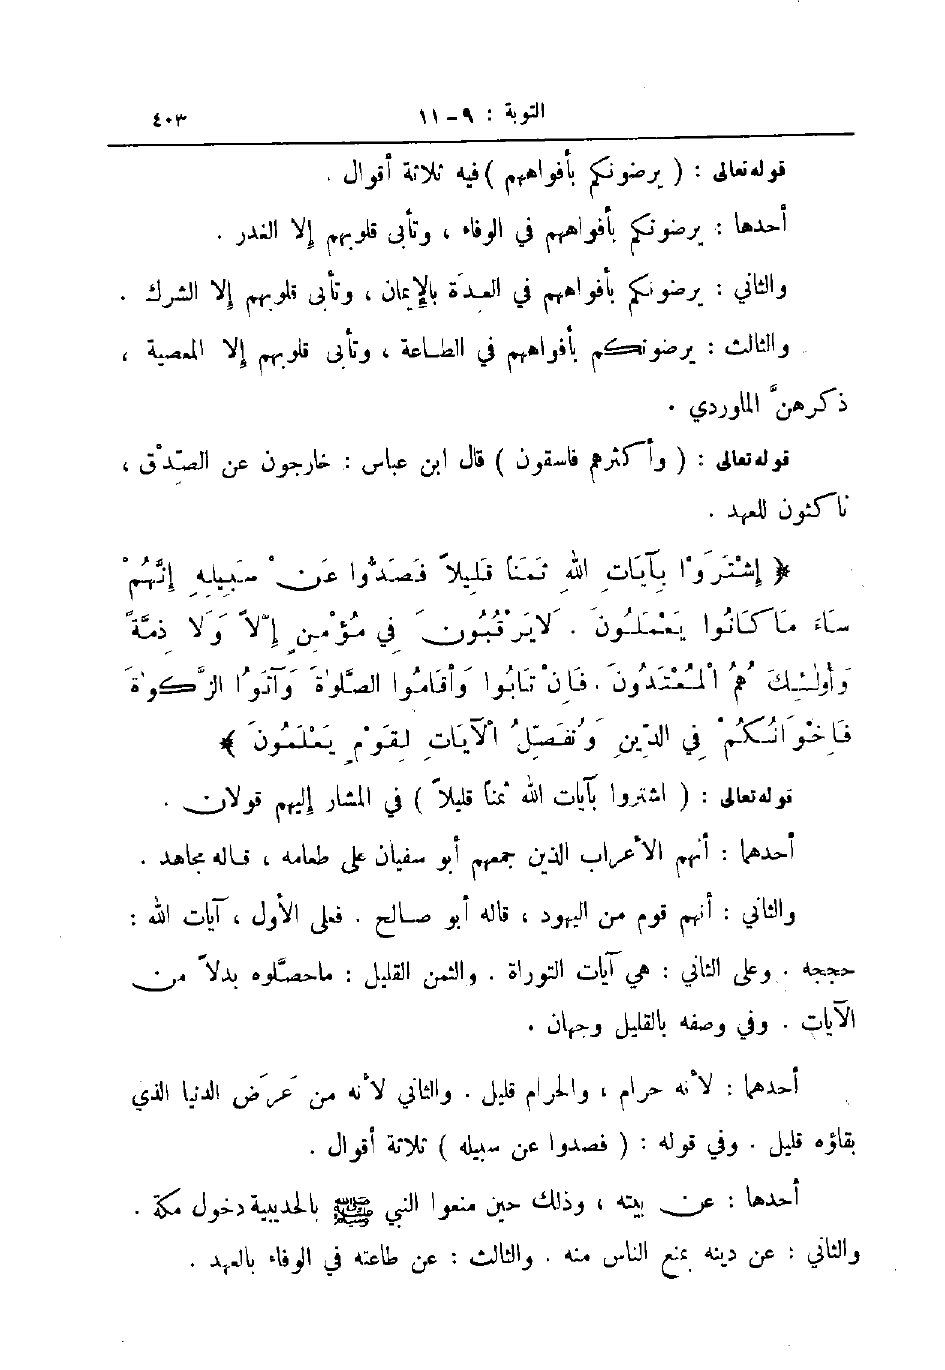 التوبة : ٩ – ١١ ٤٠٣
قوله تعالى : ( يرضونكم بأفواههم ) فيه ثلاثة أقوال .
أحدها : يرضونكم بأفواههم في الوفاء ، وتأبى قلوبهم إلا الغدر .
والثاني : يرضونكم بأفواههم في العِدَة بالإيمان ، وتأبى قلوبهم إلا الشرك .
والثالث : يرضونكم بأفواههم في الطاعة ، وتأبى قلوبهم إلا المعصية ،
ذكرهنَّ الماوردي .
قوله تعالى : ( وأكثرهم فاسقون ) قال ابن عباس : خارجون عن الصِّدْق ،
ناكثون للعهد .
﴿ إِشْتَرَوْا بِآيَاتِ اللهِ ثَمَنَاً قَلِيلاً فَصَدُّوا عَنْ سَبِيلِهِ إِنَّهُمْ
سَاءَ مَا كَانُوا يَعْمَلُونَ . لَا يَرْقُبُونَ فِي مُؤْمِنٍ إِلّاً وَلَا ذِمَّةً
وَأُولٰئِكَ هُمُ الْمُعْتَدُونَ . فَإِنْ تَابُوا وَأَقَامُوا الصَّلٰوةَ وَآتَوُا الزَّكٰوةَ
فَإِخْوَانُكُمْ فِي الدِّينِ وَنُفَصِّلُ الْآيَاتِ لِقَوْمٍ يَعْلَمُونَ ﴾
قوله تعالى : ( اشتروا بآيات الله ثمناً قليلاً ) في المشار إليهم قولان .
أحدهما : أنهم الأعراب الذين جمعهم أبو سفيان على طعامه ، قاله مجاهد .
والثاني : أنهم قوم من اليهود ، قاله أبو صالح . فعلى الأول ، آيات الله :
حججه . وعلى الثاني : هي آيات التوراة . والثمن القليل : ما حصَّلوه بدلاً من
الآيات . وفي وصفه بالقليل وجهان .
أحدهما : لأنه حرام ، والحرام قليل . والثاني لأنه من عَرَض الدنيا الذي
بقاؤه قليل . وفي قوله : ( فصدوا عن سبيله ) ثلاثة أقوال .
أحدها : عن بيته ، وذلك حين منعوا النبي ﷺ بالحديبية دخول مكة .
والثاني : عن دينه بمنع الناس منه . والثالث : عن طاعته في الوفاء بالعهد .